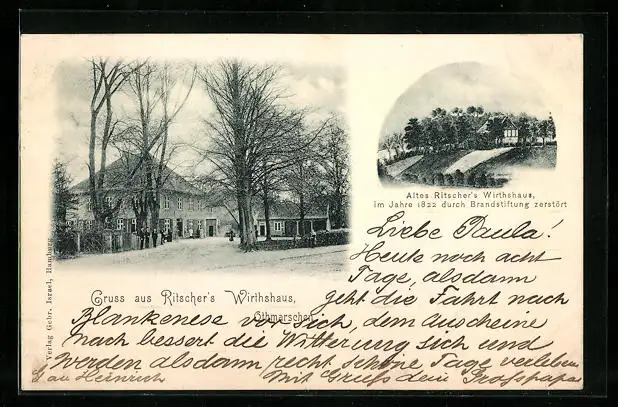 Altes Ritscher's Wirthshaus,
im Jahre 1822 durch Brandstiftung zerstört
Liebe Paula!
Heute noch acht
Tage, alsdann
Gruss aus Ritscher's Wirthshaus,
Othmarschen
geht die Fahrt nach
Blankenese vor sich, dem Anscheine
nach bessert die Witterung sich und
werden alsdann recht schöne Tage verleben
Mit Gruß dein Großpapa
G an Heinrich
Verlag Gebr. Israel, Hamburg